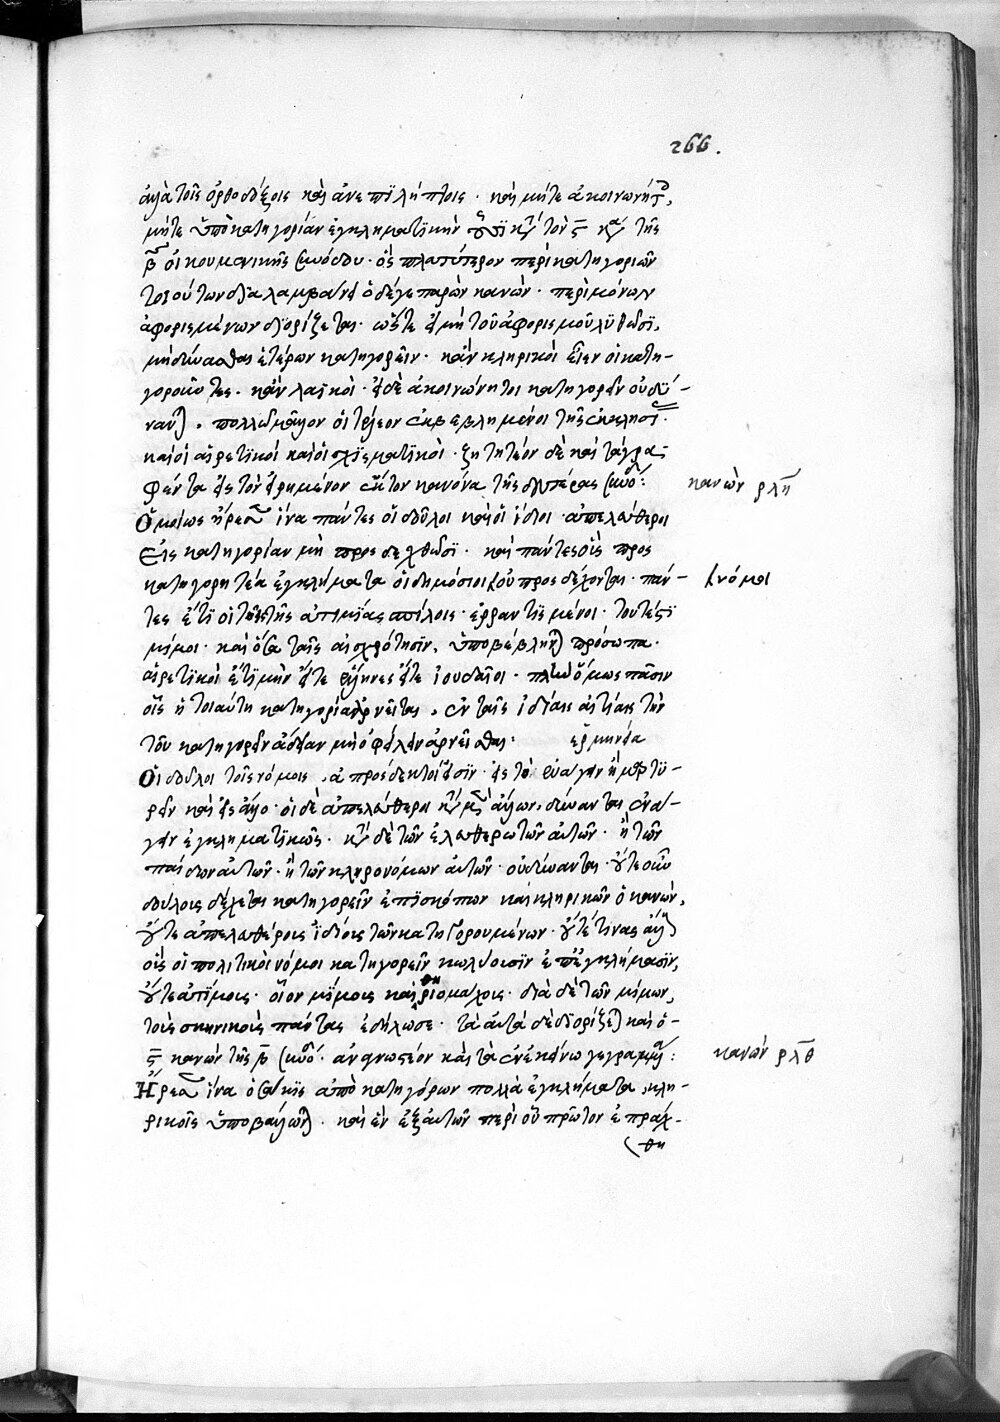 266.
ἀλλὰ τοῖς ὀρθοδόξοις καὶ ἀνεπιλήπτοις· καὶ μήτε ἀκοινωνήτοις,
μήτε ὑπὸ κατηγορίαν ἐγκληματικὴν οὖσι κατὰ τὸν ϛ κανόνα τῆς
β οἰκουμενικῆς συνόδου· ὃς πλατύτερον περὶ κατηγοριῶν
τοιούτων διαλαμβάνει ὁ δέ γε παρὼν κανών· περὶ μόνων
ἀφορισμένων διορίζεται· ὥστε εἰ μὴ τοῦ ἀφορισμοῦ λυθῶσι,
μὴ δύνασθαι ἑτέρων κατηγορεῖν· κἂν κληρικοὶ εἶεν οἱ κατη-
γοροῦντες· κἂν λαϊκοί· εἰ δὲ ἀκοινώνητοι κατηγορεῖν οὐ δύ-
νανται, πολλῶ μᾶλλον οἱ τέλεον ἐκβεβλημένοι τῆς ἐκκλησίας
καὶ οἱ αἱρετικοὶ καὶ οἱ σχισματικοί· ζητητέον δὲ καὶ τὰ γρα-
φέντα εἰς τὸν εἰρημένον ἕκτον κανόνα τῆς δευτέρας συνόδου:
κανὼν ρλη
Ὁμοίως ἤρεσεν ἵνα πάντες οἱ δοῦλοι καὶ οἱ ἴδιοι ἀπελεύθεροι
εἰς κατηγορίαν μὴ προσδεχθῶσι· καὶ πάντες οὓς πρὸς
κατηγορητέα ἐγκλήματα οἱ δημόσιοι οὐ προσδέχονται· πάν-
νόμοι
τες ἔτι οἱ τοῖς τῆς ἀτιμίας σπίλοις ἐρραντισμένοι· τουτέστι
μῖμοι· καὶ ὅσα ταῖς αἰσχρότησιν, ὑποβέβληνται πρόσωπα·
αἱρετικοὶ ἔτι μὴν εἴτε ἕλληνες εἴτε ἰουδαῖοι· πλὴν ὅμως πᾶσιν
οἷς ἡ τοιαύτη κατηγορία ἀρνεῖται, ἐν ταῖς ἰδίαις αἰτίαις τὴν
τοῦ κατηγορεῖν ἄδειαν μὴ ὀφείλειν ἀρνεῖσθαι· ἑρμηνεία
Οἱ δοῦλοι τοῖς νόμοις ἀπρόσδεκτοί εἰσιν· εἰς τὸ ἐνάγειν ἢ μαρτυ-
ρεῖν καὶ εἰς ἄλλο· οἱ δὲ ἀπελεύθεροι κατὰ μὲν ἄλλων, δύνανται ἐνά-
γειν ἐγκληματικῶς· κατὰ δὲ τῶν ἐλευθερωτῶν αὐτῶν· ἢ τῶν
παίδων αὐτῶν· ἢ τῶν κληρονόμων αὐτῶν· οὐ δύνανται· οὔτε οὖν
δούλοις δέχεται κατηγορεῖν ἐπισκόπων καὶ κληρικῶν ὁ κανών,
οὔτε ἀπελευθέροις ἰδίοις τῶν κατηγορουμένων· οὔτέ τινας ἄλλους
οἷς οἱ πολιτικοὶ νόμοι κατηγορεῖν κωλύουσιν ἐπ' ἐγκλήμασιν,
οὔτε ἀτίμοις· οἷον μίμοις καὶ θηριομάχοις· διὰ δὲ τῶν μίμων,
τοὺς σκηνικοὺς πάντας ἐδήλωσε· τὰ αὐτὰ δὲ διορίζεται καὶ ὁ
ϛ κανὼν τῆς β συνόδου· ἀναγνωστέον καὶ τὰ ἐν ἐκείνω γεγραμμένα:
κανὼν ρλθ
Ἤρεσεν ἵνα ὁσάκις ἀπὸ κατηγόρων πολλὰ ἐγκλήματα, κλη-
ρικοῖς ὑποβάλλωνται· καὶ ἓν ἐξ αὐτῶν περὶ οὗ πρῶτον ἐπράχ-
θη